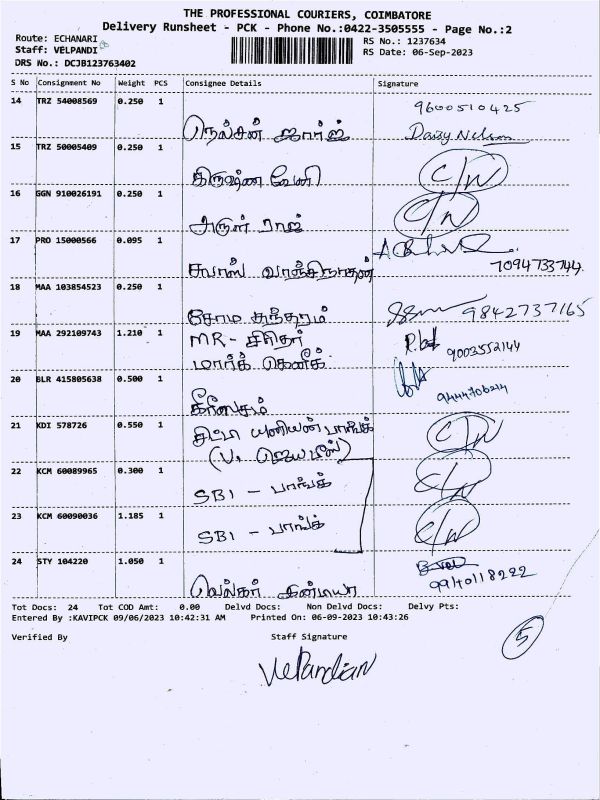 THE PROFESSIONAL COURIERS, COIMBATORE
Delivery Runsheet - PCK - Phone No.:0422-3505555 - Page No.:2
Route: ECHANARI
Staff: VELPANDI
DRS No.: DCJB123763402
RS No.: 1237634
RS Date: 06-Sep-2023
S No Consignment No Weight PCS Consignee Details Signature
14 TRZ 54008569 0.250 1 9600510425
நெல்சன் ஜார்ஜ் Daisy Nelson
15 TRZ 50005409 0.250 1
கிருஷ்ண வேணி C/N
16 GGN 910026191 0.250 1
அருள் ராஜ் C/N
17 PRO 15000566 0.095 1
7094733744
18 MAA 103854523 0.250 1
சோம சுந்தரம் 9842737165
19 MAA 292109743 1.210 1 MR-
மார்க் 9003552144
20 BLR 415805638 0.500 1
9444706214
21 KDI 578726 0.550 1 யூனியன் பாங்க் C/N
22 KCM 60089965 0.300 1
SBI - பாங்க் C/N
23 KCM 60090036 1.185 1
SBI - பாங்க் C/N
24 STY 104220 1.050 1
9940118222
Tot Docs: 24 Tot COD Amt: 0.00 Delvd Docs: Non Delvd Docs: Delvy Pts:
Entered By :KAVIPCK 09/06/2023 10:42:31 AM Printed On: 06-09-2023 10:43:26
Verified By Staff Signature
5
VelPandian